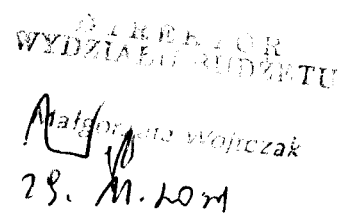 DYREKTOR
WYDZIAŁU BUDŻETU
Małgorzata Wojtczak
29.